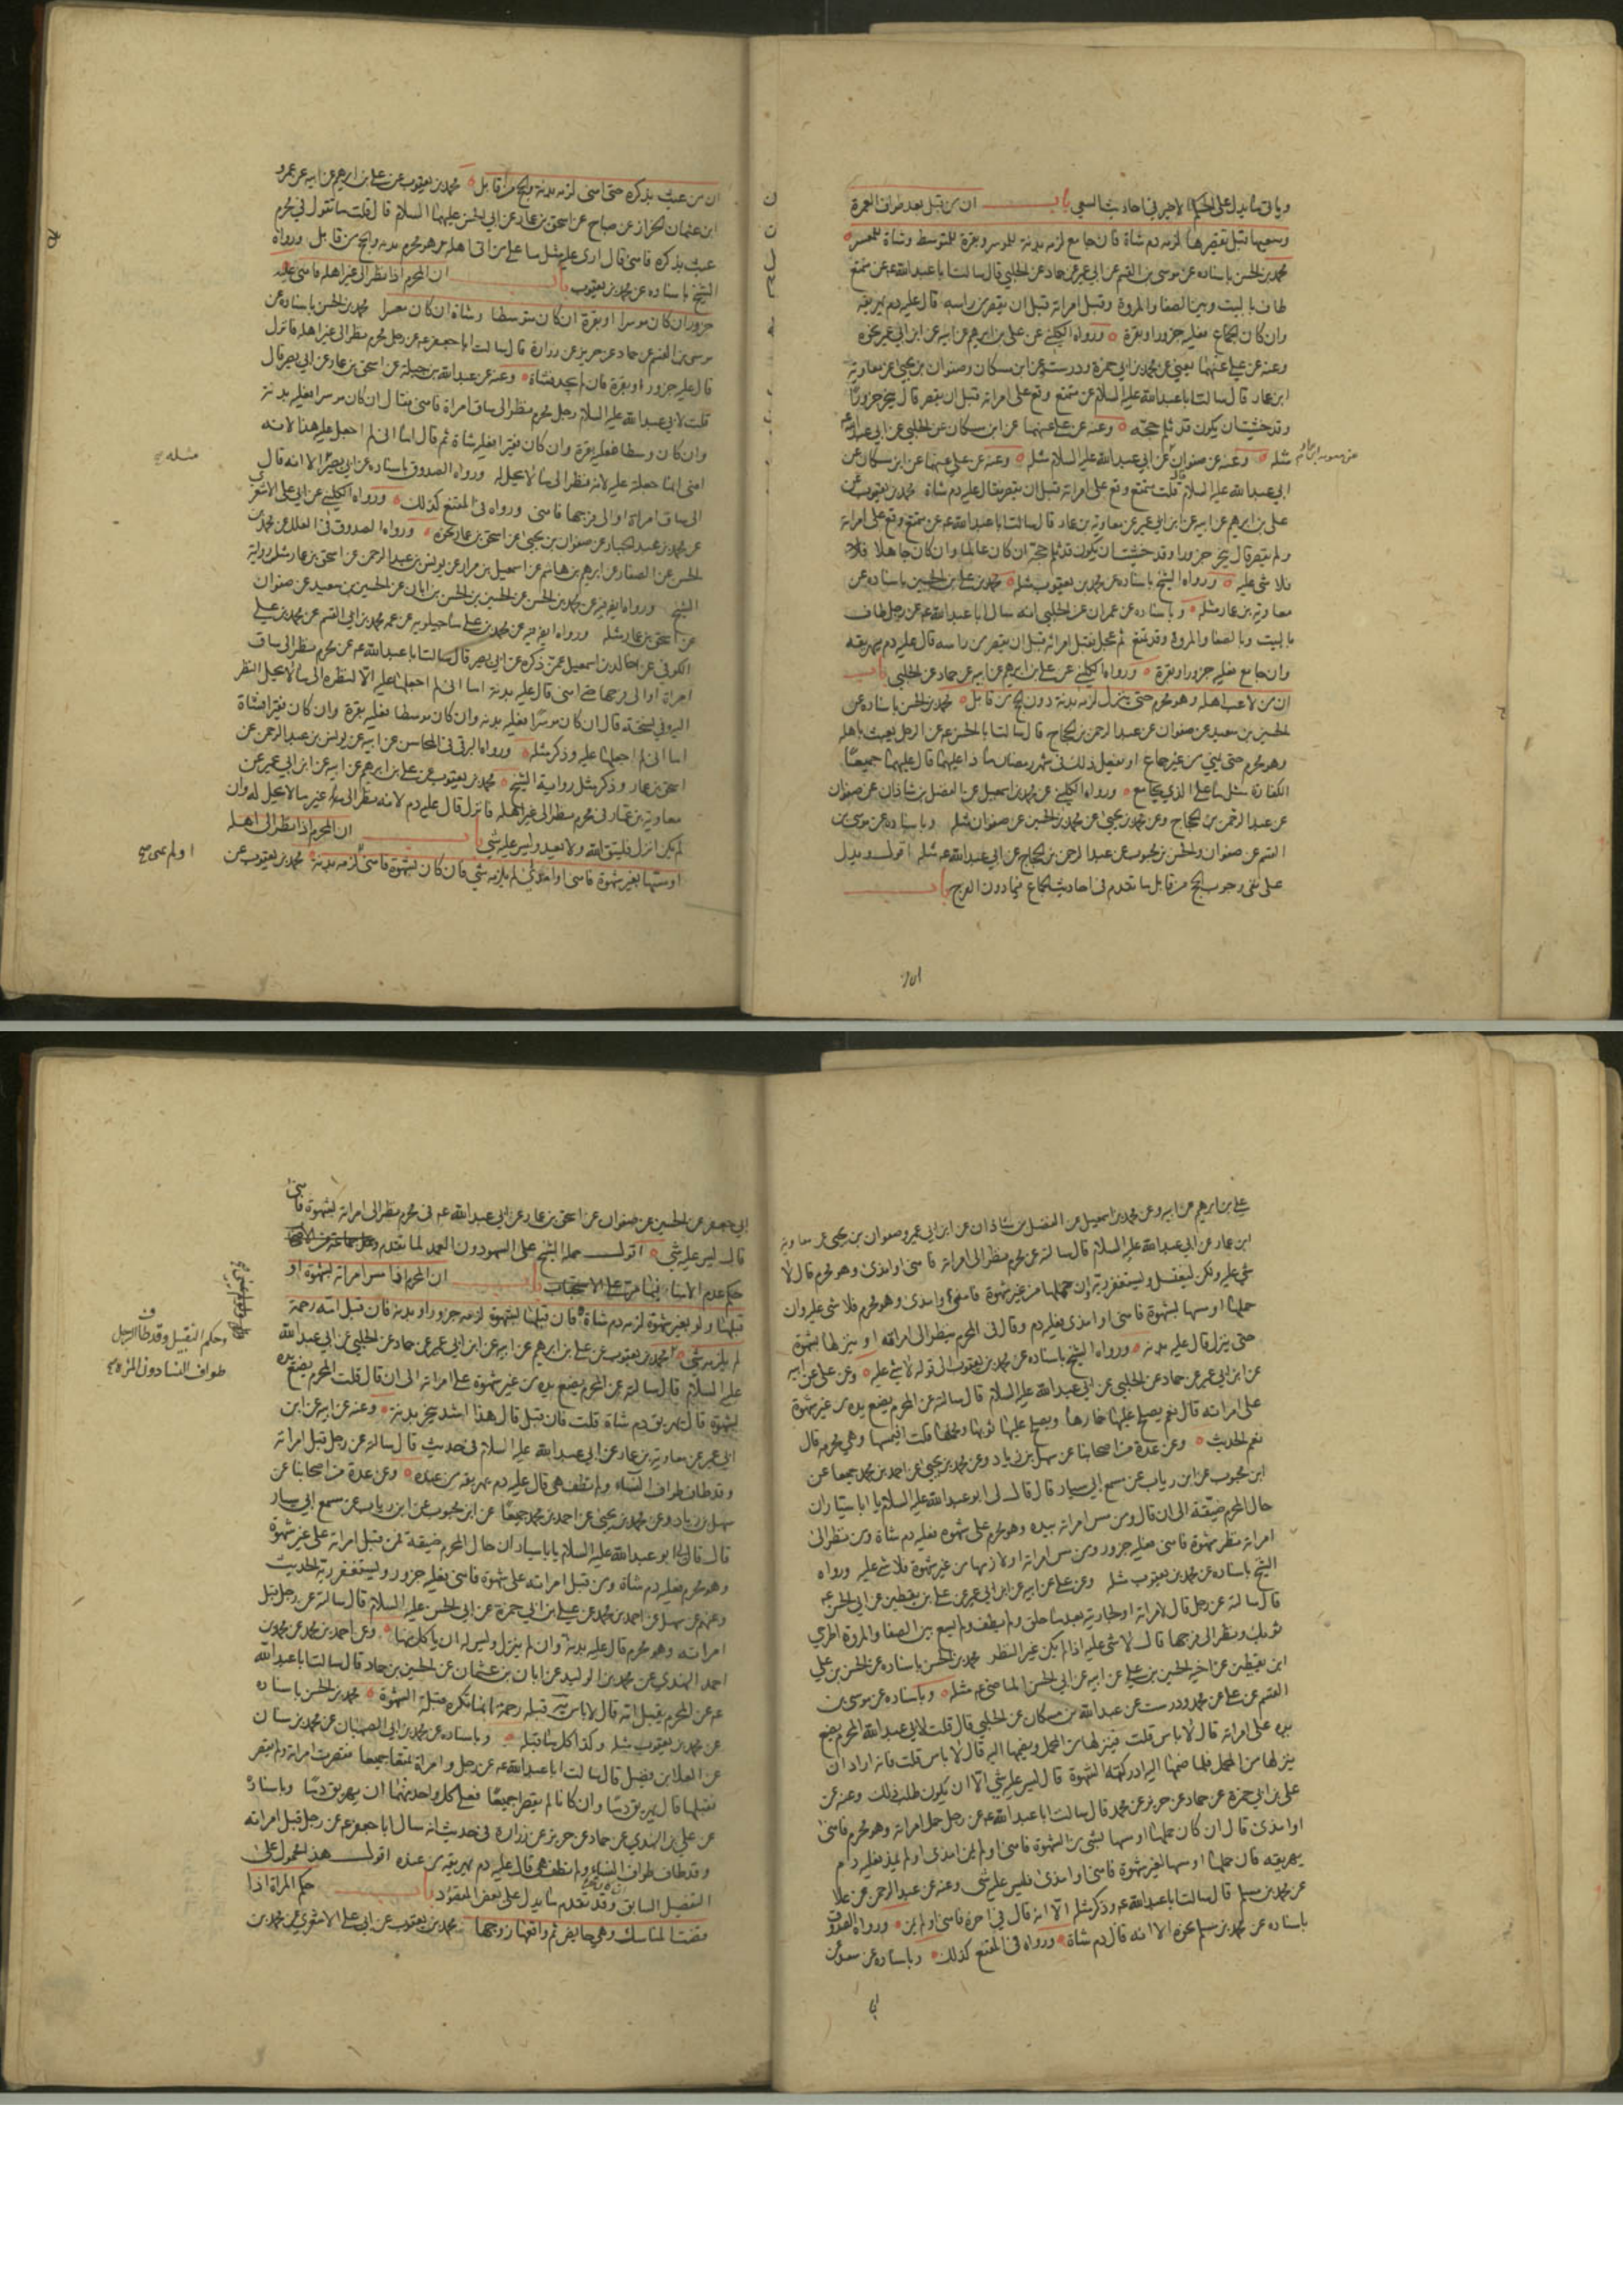 ويأتي ما يدل على الحكم الاخير في احاديث السعي باب ان من قبل بعد طواف العمرة
وسعيها قبل تقصيرها لزمه دم شاة فان جامع لزمه بدنة للموسر وبقرة للمتوسط وشاة للمعسر
محمد بن الحسن باسناده عن موسى بن القسم عن ابي عمير عن حماد عن الحلبي قال سالت ابا عبد الله عه عن متمتع
طاف بالبيت وبين الصفا والمروة وقبل امراته قبل ان يقصر من راسه قال عليه دم يهريقه
وان كان الجماع فعليه جزور او بقرة ورواه الكليني عن علي بن ابرهيم عن ابيه عن ابن ابي عمير نحوه
وعنه عن علي عنهما يعني عن محمد بن ابي حمزة ودرست عن ابن مسكان وصفوان بن يحيى عن معاوية
ابن عمار قال سالت ابا عبد الله عليه السلام عن متمتع وقع على امراته قبل ان يقصر قال ينحر جزورا
وقد خشيت ان يكون قد ثلم حجته وعنه عن علي عنهما عن ابن مسكان عن الحلبي عن ابي عبد الله عه
مثله وعنه عن صفوان عن ابي عبد الله عليه السلام مثله وعنه عن علي عنهما عن ابن مسكان عن
عن معوية بن عمار
ابي عبد الله عليه السلام قال قلت متمتع وقع على امراته قبل ان يقصر فقال عليه دم شاة محمد بن يعقوب عن
علي بن ابرهيم عن ابيه عن ابن ابي عمير عن معاوية بن عمار قال سالت ابا عبد الله عه عن متمتع وقع على امراته
ولم يقصر قال ينحر جزورا وقد خشيت ان يكون قد ثلم حجه ان كان عالما وان كان جاهلا فلا
فلا شي عليه ورواه الشيخ باسناده عن محمد بن يعقوب مثله محمد بن علي بن الحسين باسناده عن
معاوية بن عمار مثله وباسناده عن عمران عن الحلبي انه سال ابا عبد الله عه عن رجل طاف
بالبيت وبالصفا والمروة وقد تمتع ثم عجل فقبل امراته قبل ان يقصر من راسه قال عليه دم يهريقه
وان جامع فعليه جزور او بقرة ورواه الكليني عن علي بن ابرهيم عن ابيه عن حماد عن الحلبي باب
ان من لاعب اهله وهو محرم حتى ينزل لزمه بدنة دون الحج من قابل محمد بن الحسن باسناده عن
الحسين بن سعيد عن صفوان عن عبد الرحمن بن الحجاج قال سالت ابا الحسن عه عن الرجل يعبث باهله
وهو محرم حتى يمني من غير جماع او يفعل ذلك في شهر رمضان ماذا عليهما قال عليهما جميعا
الكفارة مثل ما على الذي يجامع ورواه الكليني عن محمد بن اسمعيل عن الفضل بن شاذان عن صفوان
عن عبد الرحمن بن الحجاج وعن محمد بن يحيى عن محمد بن الحسين عن صفوان مثله وباسناده عن موسى بن
القسم عن صفوان والحسن بن محبوب عن عبد الرحمن بن الحجاج عن ابي عبد الله عه مثله اقول ويدل
على نفي وجوب الحج من قابل ما تقدم في احاديث الجماع فيما دون الفرج باب
ان من
ان من عبث بذكره حتى امنى لزمه بدنة والحج من قابل محمد بن يعقوب عن علي بن ابرهيم عن ابيه عن عمرو
ابن عثمان الخزاز عن صباح عن اسحق بن عمار عن ابي الحسن عليهما السلام قال قلت ما تقول في محرم
عبث بذكره فامنى قال ارى عليه مثل ما على من اتى اهله وهو محرم بدنه والحج من قابل ورواه
الشيخ باسناده عن محمد بن يعقوب باب ان المحرم اذا نظر الى غير اهله فامنى عليه
جزور ان كان موسرا او بقرة ان كان متوسطا وشاة ان كان معسرا محمد بن الحسن باسناده عن
موسى بن القسم عن حماد عن حريز عن زرارة قال سالت ابا جعفر عه عن رجل محرم نظر الى غير اهله فانزل
قال عليه جزور او بقرة فان لم يجد فشاة وعنه عن عبد الله بن جبلة عن اسحق بن عمار عن ابي بصير قال
قلت لابي عبد الله عليه السلام رجل محرم نظر الى ساق امراة فامنى فقال ان كان موسرا فعليه بدنة
وان كان وسطا فعليه بقرة وان كان فقيرا فعليه شاة ثم قال اما اني لم اجعل عليه هذا لانه
امنى انما جعلته عليه لانه نظر الى ما لا يحل له ورواه الصدوق باسناده عن ابي بصير الا انه قال
مثله
الى ساق امراة او الى فرجها فامنى ورواه في المقنع كذلك ورواه الكليني عن ابي علي الاشعري
عن محمد بن عبد الجبار عن صفوان بن يحيى عن اسحق بن عمار نحوه ورواه الصدوق في العلل عن محمد بن
الحسن عن الصفار عن ابرهيم بن هاشم عن اسمعيل بن مرار عن يونس بن عبد الرحمن عن اسحق بن عمار مثل رواية
الشيخ ورواه ايضا فيه عن محمد بن الحسن عن الحسين بن الحسن بن ابان عن الحسين بن سعيد عن صفوان
عن اسحق بن عمار مثله ورواه ايضا فيه عن محمد بن علي ماجيلويه عن عمه محمد بن ابي القسم عن محمد بن علي
الكوفي عن خالد بن اسمعيل عمن ذكره عن ابي بصير قال سالت ابا عبد الله عه عن محرم نظر الى ساق
امراة او الى فرجها حتى امنى قال عليه بدنة اما اني لم اجعلها عليه الا لنظره الى ما لا يحل النظر
اليه وفي نسخة قال ان كان موسرا فعليه بدنه وان كان متوسطا فعليه بقرة وان كان فقيرا فشاة
اما اني لم اجعلها عليه وذكر مثله ورواه البرقي في المحاسن عن ابيه عن يونس بن عبد الرحمن عن
اسحق بن عمار وذكر مثل رواية الشيخ محمد بن يعقوب عن علي بن ابرهيم عن ابيه عن ابن ابي عمير عن
معاوية بن عمار في محرم نظر الى غير اهله فانزل قال عليه دم لانه نظر الى غير ما لا يحل له وان
لم يكن انزل فليتق الله ولا يعد وليس عليه شي باب ان المحرم اذا نظر الى اهله
او مسها بغير شهوة فامنى او امذى لم يلزمه شي فان كان بشهوة فامنى لزمه بدنة محمد بن يعقوب عن
او لم يمن
علي بن ابرهيم عن ابيه وعن محمد بن اسمعيل عن الفضل بن شاذان عن ابن ابي عمير وصفوان بن يحيى عن معاوية
ابن عمار عن ابي عبد الله عليه السلام قال سالته عن محرم نظر الى امراته فامنى او امذى وهو محرم قال لا
شي عليه ولكن ليغتسل ويستغفر ربه وان حملها من غير شهوة فامنى او امذى وهو محرم فلا شي عليه وان
حملها او مسها بشهوة فامنى او امذى فعليه دم وقال في المحرم ينظر الى امراته او ينزلها بشهوة
حتى ينزل قال عليه بدنة ورواه الشيخ باسناده عن محمد بن يعقوب الى قوله لا شي عليه وعن علي عن ابيه
عن ابن ابي عمير عن حماد عن الحلبي عن ابي عبد الله عليه السلام قال سالته عن المحرم يضع يده من غير شهوة
على امراته قال نعم يصلح عليها خمارها ويصلح عليها ثوبها ومحملها قلت افيمسها وهي محرمه قال
نعم الحديث وعن عدة من اصحابنا عن سهل بن زياد وعن محمد بن يحيى عن احمد بن محمد جميعا عن
ابن محبوب عن ابن رياب عن مسمع ابي سيار قال قال لي ابو عبد الله عليه السلام يا ابا سيار ان
حال المحرم ضيقة الى ان قال ومن مس امراته بيده وهو محرم على شهوة فعليه دم شاة ومن نظر الى
امراته نظر شهوة فامنى فعليه جزور ومن مس امراته او لازمها من غير شهوة فلا شي عليه ورواه
الشيخ باسناده عن محمد بن يعقوب مثله وعن علي عن ابيه عن ابن ابي عمير عن علي بن يقطين عن ابي الحسن عه
قال سالته عن رجل قال لامراته او لجاريته بعد ما حلق ولم يطف ولم يسع بين الصفا والمروة اطرحي
ثوبك ونظر الى فرجها قال لا شي عليه اذا لم يكن غير النظر محمد بن الحسن باسناده عن الحسن بن علي
ابن يقطين عن اخيه الحسين بن علي عن ابيه عن ابي الحسن الماضي عه مثله وباسناده عن موسى بن
القسم عن علي عن محمد ودرست عن عبد الله بن مسكان عن الحلبي قال قلت لابي عبد الله المحرم يضع
يده على امراته قال لا باس قلت فينزلها من المحمل ويضمها اليه قال لا باس قلت فانه اراد ان
ينزلها من المحمل فلما ضمها اليه ادركته الشهوة قال ليس عليه شي الا ان يكون طلب ذلك وعنه عن
علي بن ابي حمزة عن حماد عن حريز عن محمد قال سالت ابا عبد الله عه عن رجل حمل امراته وهو محرم فامنى
او امذى قال ان كان حملها او مسها بشي من الشهوة فامنى او لم يمن امذى او لم يمذ فعليه دم
يهريقه فان حملها او مسها لغير شهوة فامنى او امذى فليس عليه شي وعنه عن عبد الرحمن عن علا
عن محمد بن مسلم قال سالت ابا عبد الله عه وذكر مثله الا انه قال في اخره فامنى او لم يمن ورواه الصدوق
باسناده عن محمد بن مسلم نحوه الا انه قال دم شاة ورواه في المقنع كذلك وباسناده عن سعد عن
ابي جعفر عن الحسين عن صفوان عن اسحق بن عمار عن ابي عبد الله عه في محرم نظر الى امراته بشهوة فامنى
قال ليس عليه شي اقول حمله الشيخ على السهو دون العمد لما تقدم
حكم عدم الامناء فيما مر على الاستحباب باب ان المحرم اذا مس امراته بشهوة او
قبلها ولو بغير شهوة لزمه دم شاة فان قبلها بشهوة لزمه جزور او بدنه فان قبل امه رحمة
وحكم التقبيل وقد طاف الرجل
طواف النسا دون المراه
لم يلزمه شي محمد بن يعقوب عن علي بن ابرهيم عن ابيه عن ابن ابي عمير عن حماد عن الحلبي عن ابي عبد الله
عليه السلام قال سالته عن المحرم يضع يده من غير شهوة على امراته الى ان قال قلت المحرم يضع يده
بشهوة قال يهريق دم شاة قلت فان قبل قال هذا اشد ينحر بدنة وعنه عن ابيه عن ابن
ابي عمير عن معاوية بن عمار عن ابي عبد الله عليه السلام في حديث قال سالته عن رجل قبل امراته
وقد طاف طواف النساء ولم تطف هي قال عليه دم يهريقه من عنده وعن عدة من اصحابنا عن
سهل بن زياد وعن محمد بن يحيى عن احمد بن محمد جميعا عن ابن محبوب عن ابن رياب عن مسمع ابي سيار
قال قال لي ابو عبد الله عليه السلام يا ابا سيار ان حال المحرم ضيقة فمن قبل امراته على غير شهوة
وهو محرم فعليه دم شاة ومن قبل امراته على شهوة فامنى فعليه جزور ويستغفر ربه الحديث
وعنهم عن سهل عن احمد بن محمد عن علي بن ابي حمزة عن ابي الحسن عليه السلام قال سالته عن رجل قبل
امراته وهو محرم قال عليه بدنة وان لم ينزل وليس له ان ياكل منها وعن احمد بن محمد عن محمد بن
احمد النهدي عن محمد بن الوليد عن ابان بن عثمان عن الحسين بن حماد قال سالت ابا عبد الله
عه عن المحرم يقبل امه قال لا باس به قبلة رحمة انما تكره قبلة الشهوة محمد بن الحسن باسناده
عن محمد بن يعقوب مثله وكذا كل ما قبله وباسناده عن محمد بن ابي الصهبان عن محمد بن سنان
عن العلا بن فضيل قال سالت ابا عبد الله عه عن رجل وامراة تمتعا جميعا فقصرت امراته ولم يقصر
فقبلها قال يهريق دما وان كانا لم يقصرا جميعا فعلى كل واحد منهما ان يهريق دما وباسناده
عن علي بن السندي عن حماد عن حريز عن زرارة في حديث انه سال ابا جعفر عه عن رجل قبل امراته
وقد طاف طواف النساء ولم تطف هي قال عليه دم يهريقه من عنده اقول هذا محمول على
التفصيل السابق وقد تقدم ما يدل على بعض المقصود باب حكم المراة اذا
قضت المناسك وهي حايض ثم واقعها زوجها محمد بن يعقوب عن ابي علي الاشعري عن محمد بن